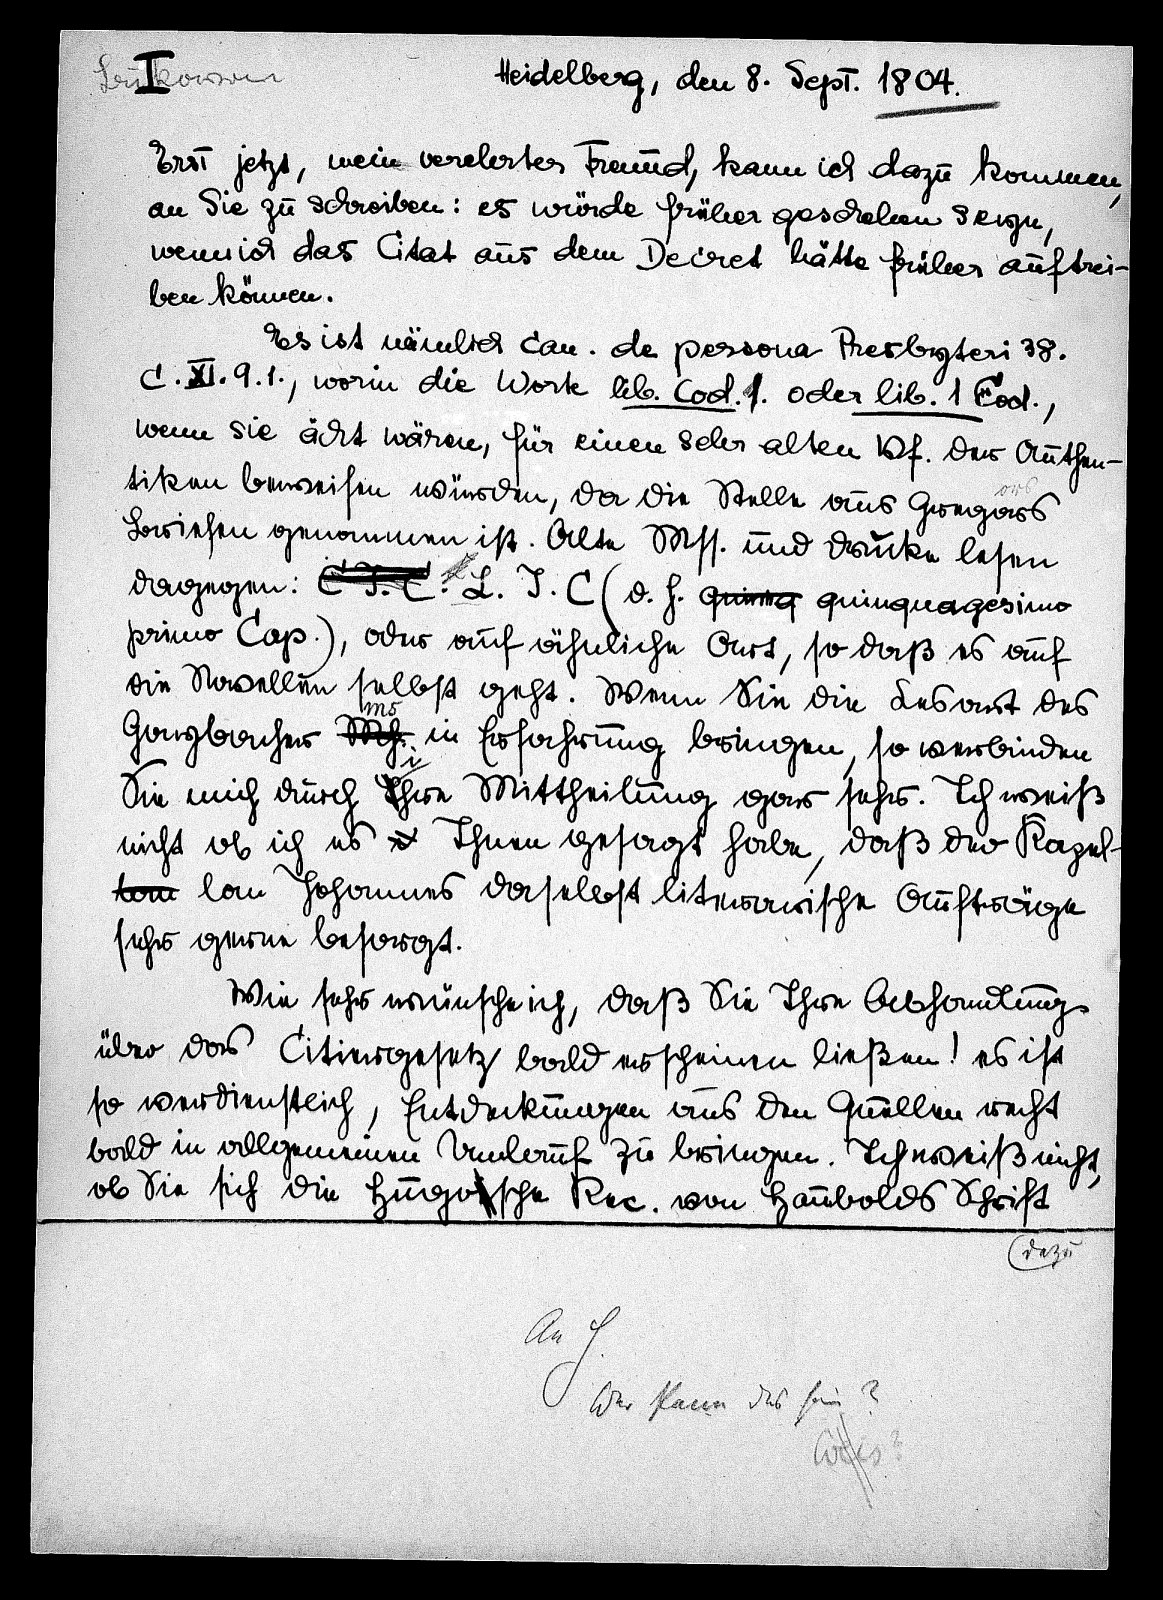 I
Heidelberg, den 8. Sept. 1804.
Erst jetzt, mein verehrter Freund, kann ich dazu kommen,
an Sie zu schreiben: es würde früher geschehen seyn,
wenn ich das Citat aus dem Decret hätte früher auftrei-
ben können.
Es ist nämlich can. de persona Presbyteri 38.
C. XI. q. 1., worin die Worte lib. Cod. 1. oder lib. 1 Cod.,
wenn sie ächt wären, für einen sehr alten Vf. der Authen-
tiken beweisen würden, da die Stelle aus Gregors
Briefen genommen ist. Alte Mss. und drucke lesen
dagegen: C. I. C. L. I. C (d. h. quinq quinquagesimo
primo Cap.), oder auf ähnliche Art, so daß es auf
die Novellen selbst geht. Wenn Sie die Lesart des
Ganzbacher ms in Erfahrung bringen, so verbinden
Sie mich durch Ihre Mittheilung gar sehr. Ich weiß
nicht ob ich es Ihnen gesagt habe, daß der Kapel-
lan Johannes daselbst literarische Aufträge
sehr gerne besorgt.
Wie sehr wünsche ich, daß Sie Ihre Abhandlung
über das Citiergesetz bald erscheinen ließen! es ist
so verdienstlich, Entdeckungen aus den Quellen recht
bald in allgemeinen Umlauf zu bringen. Ich weiß nicht,
ob Sie sich die Hugosche Rec. von Haubolds Schrift
dazu
An H.
Wer kann das sein?